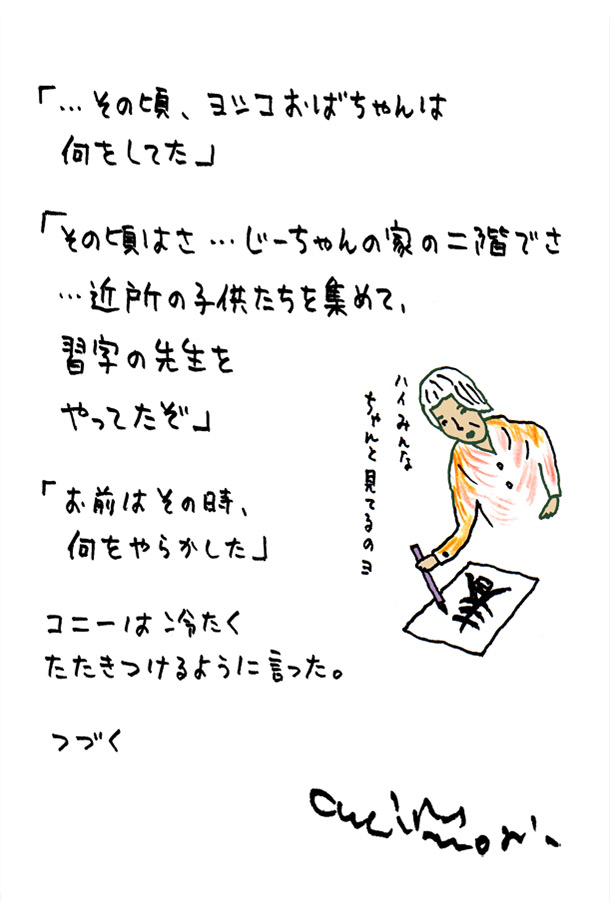 「…その頃、ヨシコおばちゃんは
何をしてた」
「その頃はさ…じーちゃんの家の二階でさ
…近所の子供たちを集めて、
習字の先生を
やってたぞ」
ハイみんな
ちゃんと見てるのヨ
「お前はその時、
何をやらかした」
コニーは冷たく
たたきつけるように言った。
つづく